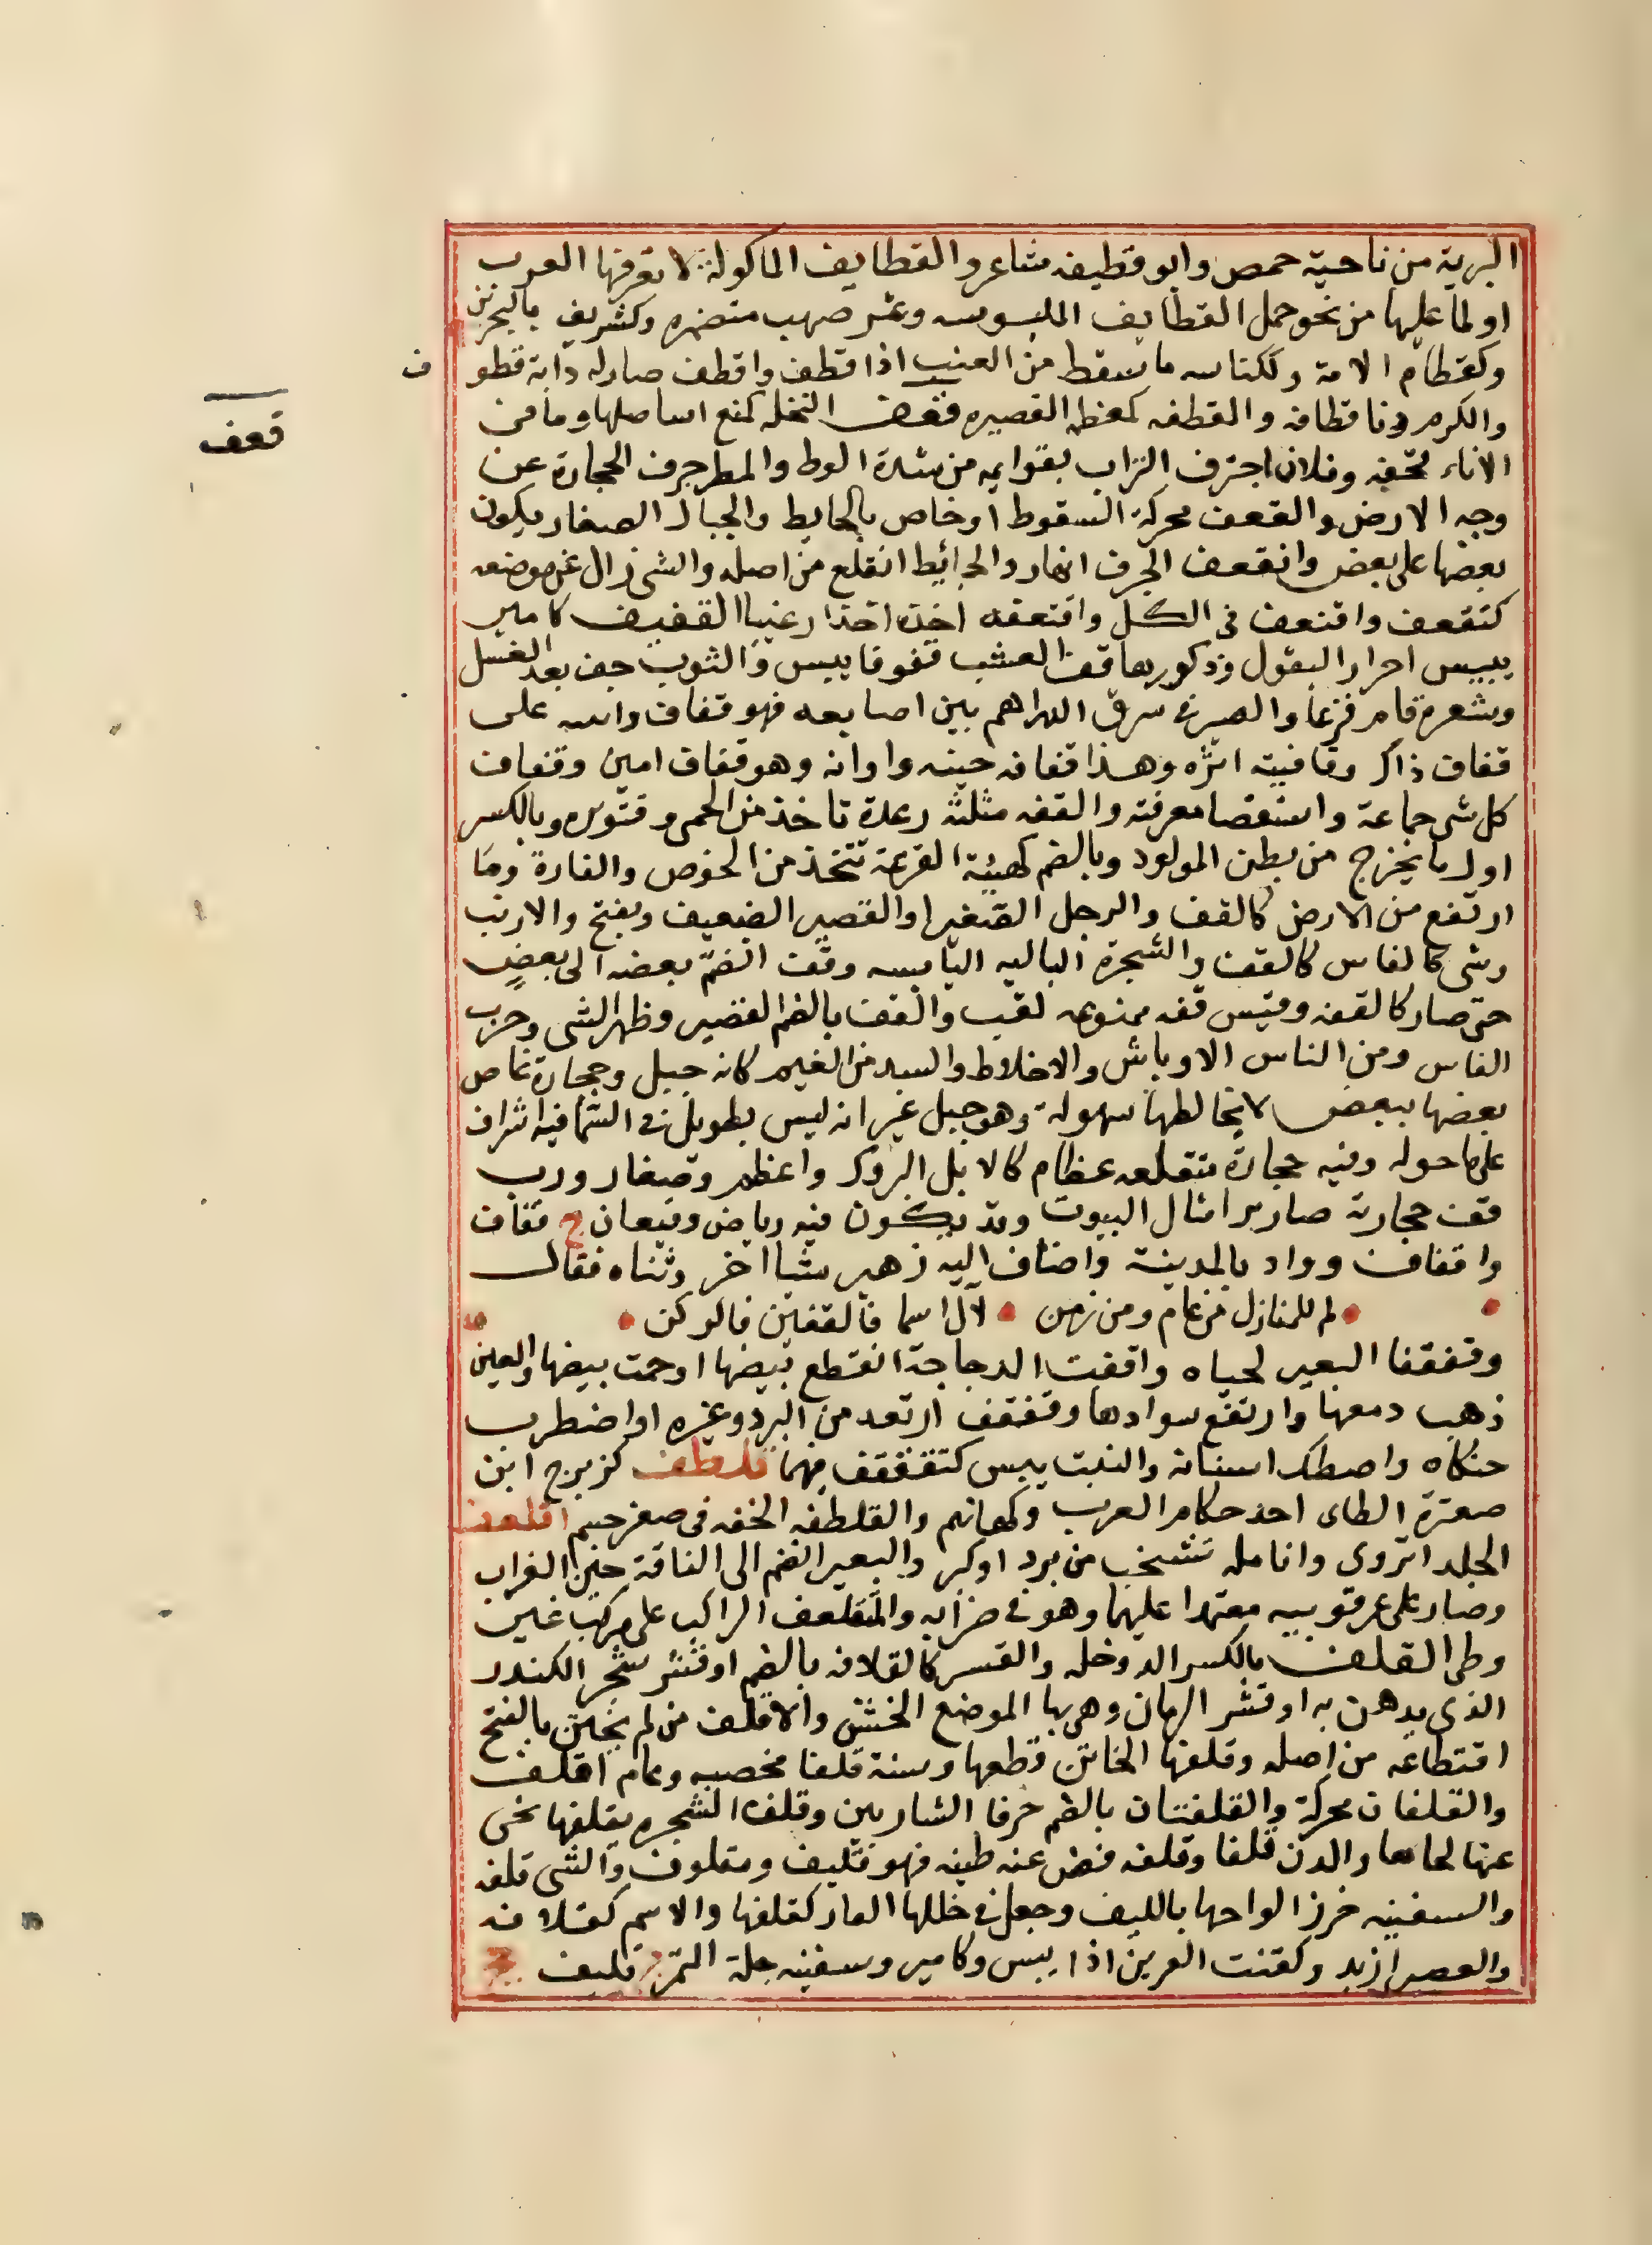 البرية من ناحية حمص وابو قطيفه شاعر والقطايف الماكولة لا تعرفها العرب
او لما عليها من نحو حمل القطايف الملبوسه وتمر صهب متضمره وكشريف بالبحرين
وكقطام الامة وككناسه ما يسقط من العنب اذا قطف واقطف صار له دابة قطو
ف
والكرم دنا قطافه والقطفه كمعظمه القصيره قعف النخله كمنع استاصلها وما فى
قعف
الاناء قحفه وفلان اجترف التراب بقوايمه من شدة الوطء والمطر جرف الحجارة عن
وجه الارض والقعف محركة السقوط او خاص بالحايط والجبال الصغار يكون
بعضها على بعض وانقعف الجرف انهار والحائيط انقلع من اصله والشى زال عن موضعه
كتقعف واقتعف فى الكل واقتعفه اخذه اخذا رغيبا القفيف كامير
يبيس احرار البقول وذكورها قف العشب قفوفا يبس والثوب جف بعد الغسل
وشعره قام فزعا والصيرفى سرق الدراهم بين اصابعه فهو قفاف واتيته على
قفان ذاك وقافيته اثره وهذا قفانه حينه واوانه وهو قفان امين وقفان
كل شى جماعة واستقصا معرفته والقفه مثلثة رعدة تاخذ من الحمى وقشعريره وبالكسر
اول ما يخرج من بطن المولود وبالضم كهيئة القرعة تتخذ من الخوص والفارة وما
ارتفع من الارض كالقف والرجل الصغير او القصير الضعيف ويفتح والارنب
وشى كالفاس كالقف والشجرة الباليه اليابسه وقف انضم بعضه الى بعض
حتى صار كالقفه وقيس قفه ممنوعه لقب والقف بالضم القصير وظهر الشى وخرت
الفاس ومن الناس الاوباش والاخلاط والسد من الغيم كانه جبل وحجارة غاص
بعضها ببعض لا يخالطها سهولة وهو جبل غير انه ليس بطويل فى السما فيه اشراف
على ما حوله وفيه حجارة متقلعه عظام كالابل البروك واعظم وصغار ورب
قف حجارته صادير امثال البيوت وقد يكون فيه رياض وقيعان ج قفاف
واقفاف وواد بالمدينة واضاف اليه زهير شيا اخر وثناه فقال
• لم للمنازل من عام ومن زمن • لآل اسما فالقفين فالركن •
وقفقفا البعير لحياه واقفت الدجاجة انقطع بيضها او جمعت بيضها والعين
ذهب دمعها وارتفع سوادها وقفقف ارتعد من البرد وغيره او اضطرب
حنكاه واصطك اسنانه والنبت يبس كتقفقف فيهما قلطف كزبرج ابن
صعترة الطاى احد حكام العرب وكهانهم والقلطفه الخفه فى صغر جسم اقلعف
الجلد انزوى وانامله تشنجت من برد او كبر والبعير انضم الى الناقة حين الضراب
وصار على عرقوبيه معتمدا عليهما وهو فى ضرابه والمتقلعف الراكب على مركب غير
وطى القلف بالكسر الدوخله والقسر كالقلافه بالضم او قشر شجر الكندر
الذى يدهن به او قشر الرمان وهى بها الموضع الخشن والاقلف من لم يختن بالفتح
اقتطاعه من اصله وقلفها الخاتن قطعها وسنة قلفا مخصبه وعام اقلف
والقلفان محركة والقلفتان بالضم حرفا الشاربين وقلف الشجره يقلفها نحى
عنها لحاها والدن قلفا وقلفه فض عنه طينه فهو قليف ومقلوف والشى قلفه
والسفينه خرز الواحها بالليف وجعل فى خللها القار كقلفها والاسم كقلافه
والعصير ازبد وكقنب الغرين اذا يبس وكامير وسفينه جلة التمر ج قليف